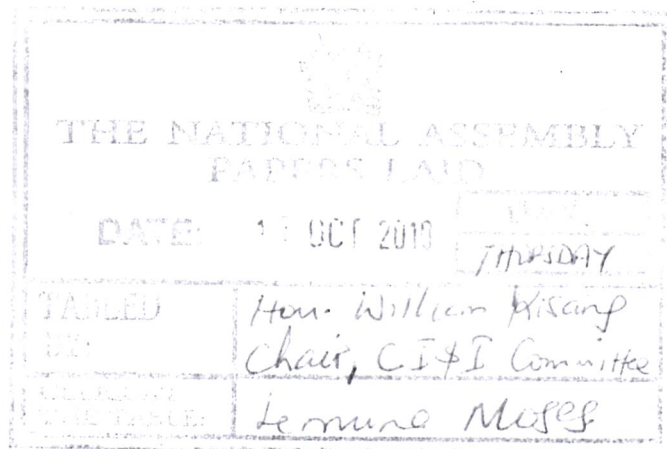 THE NATIONAL ASSEMBLY
PAPERS LAID
DATE: OCT 2019 DAY
THURSDAY
TABLED BY: Hon. William Kisang
Chair, CI&I Committee
CLERK AT THE TABLE: Lemuna Moses